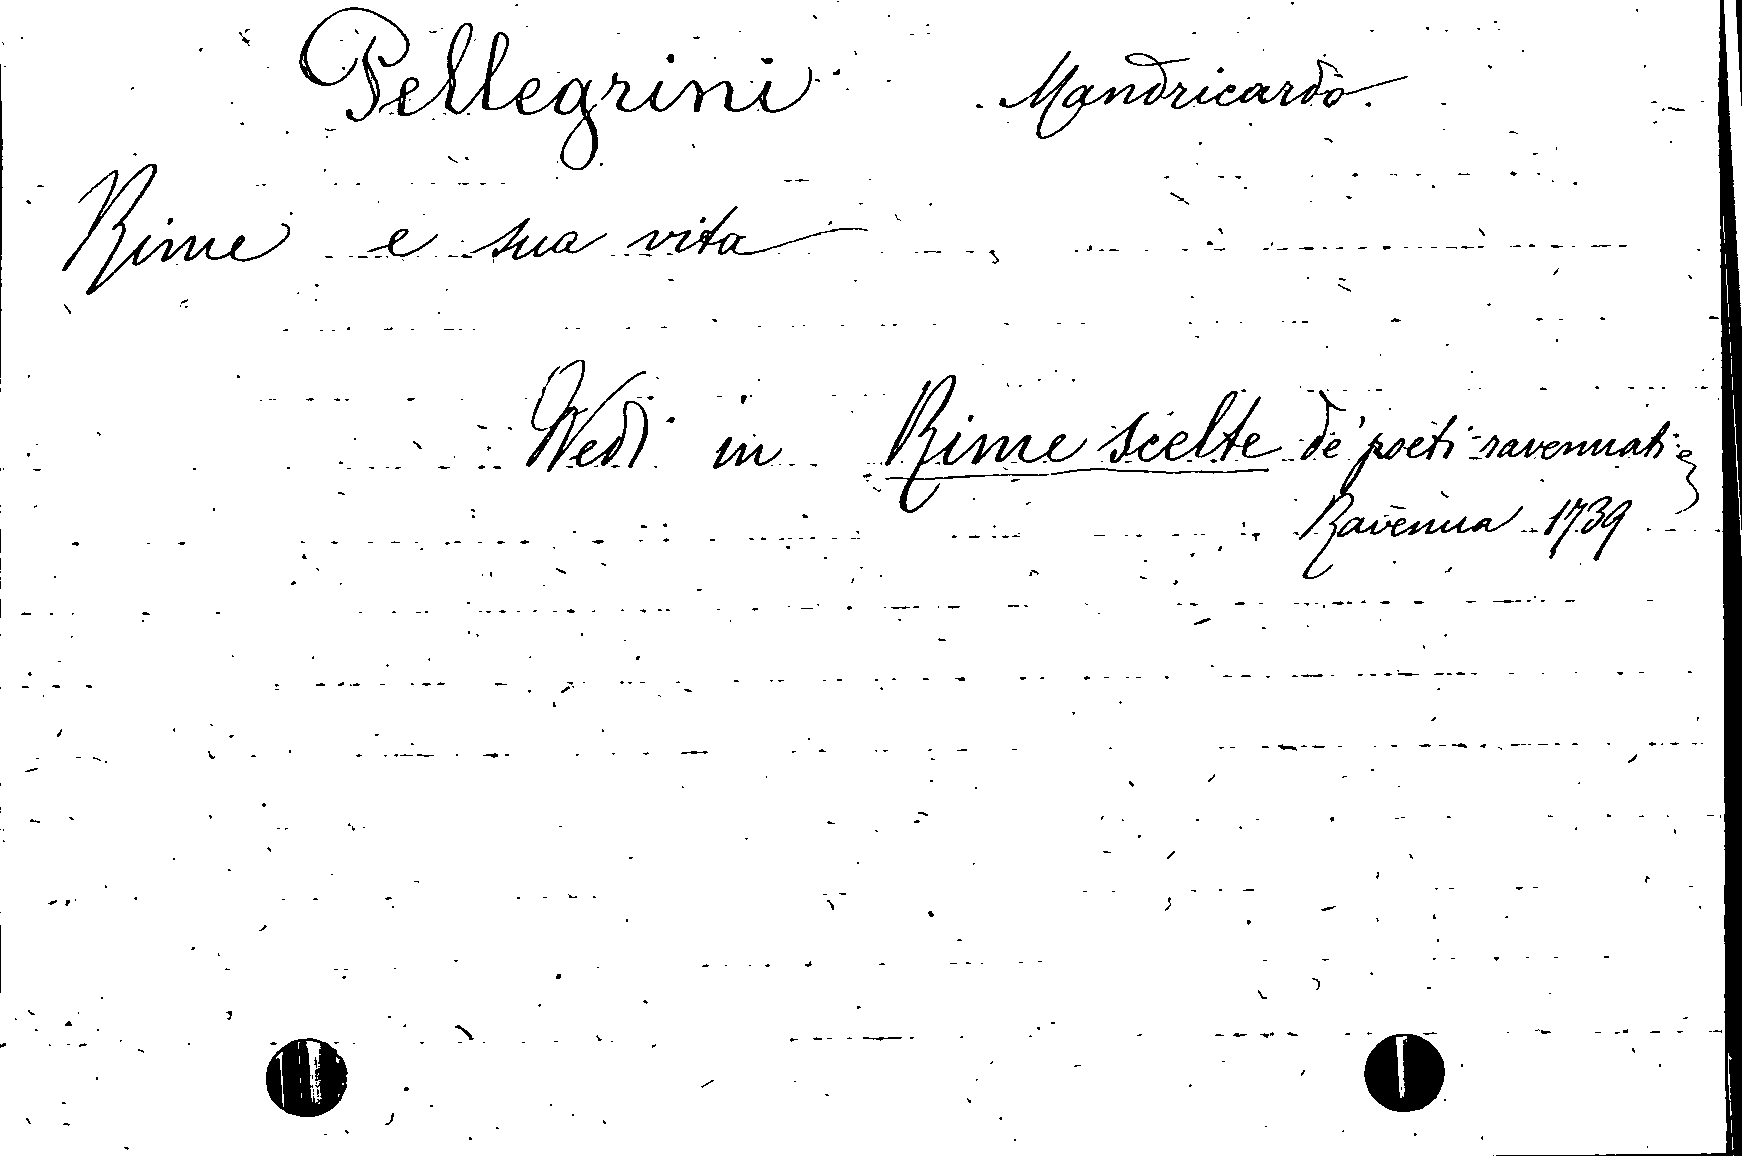 Pellegrini Mandricardo.
Rime e sua vita
Vedi in Rime scelte de' poeti ravennati
Ravenna 1739